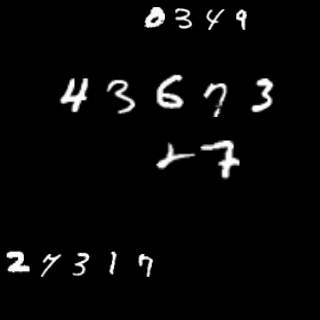 0349
43673
27
27317